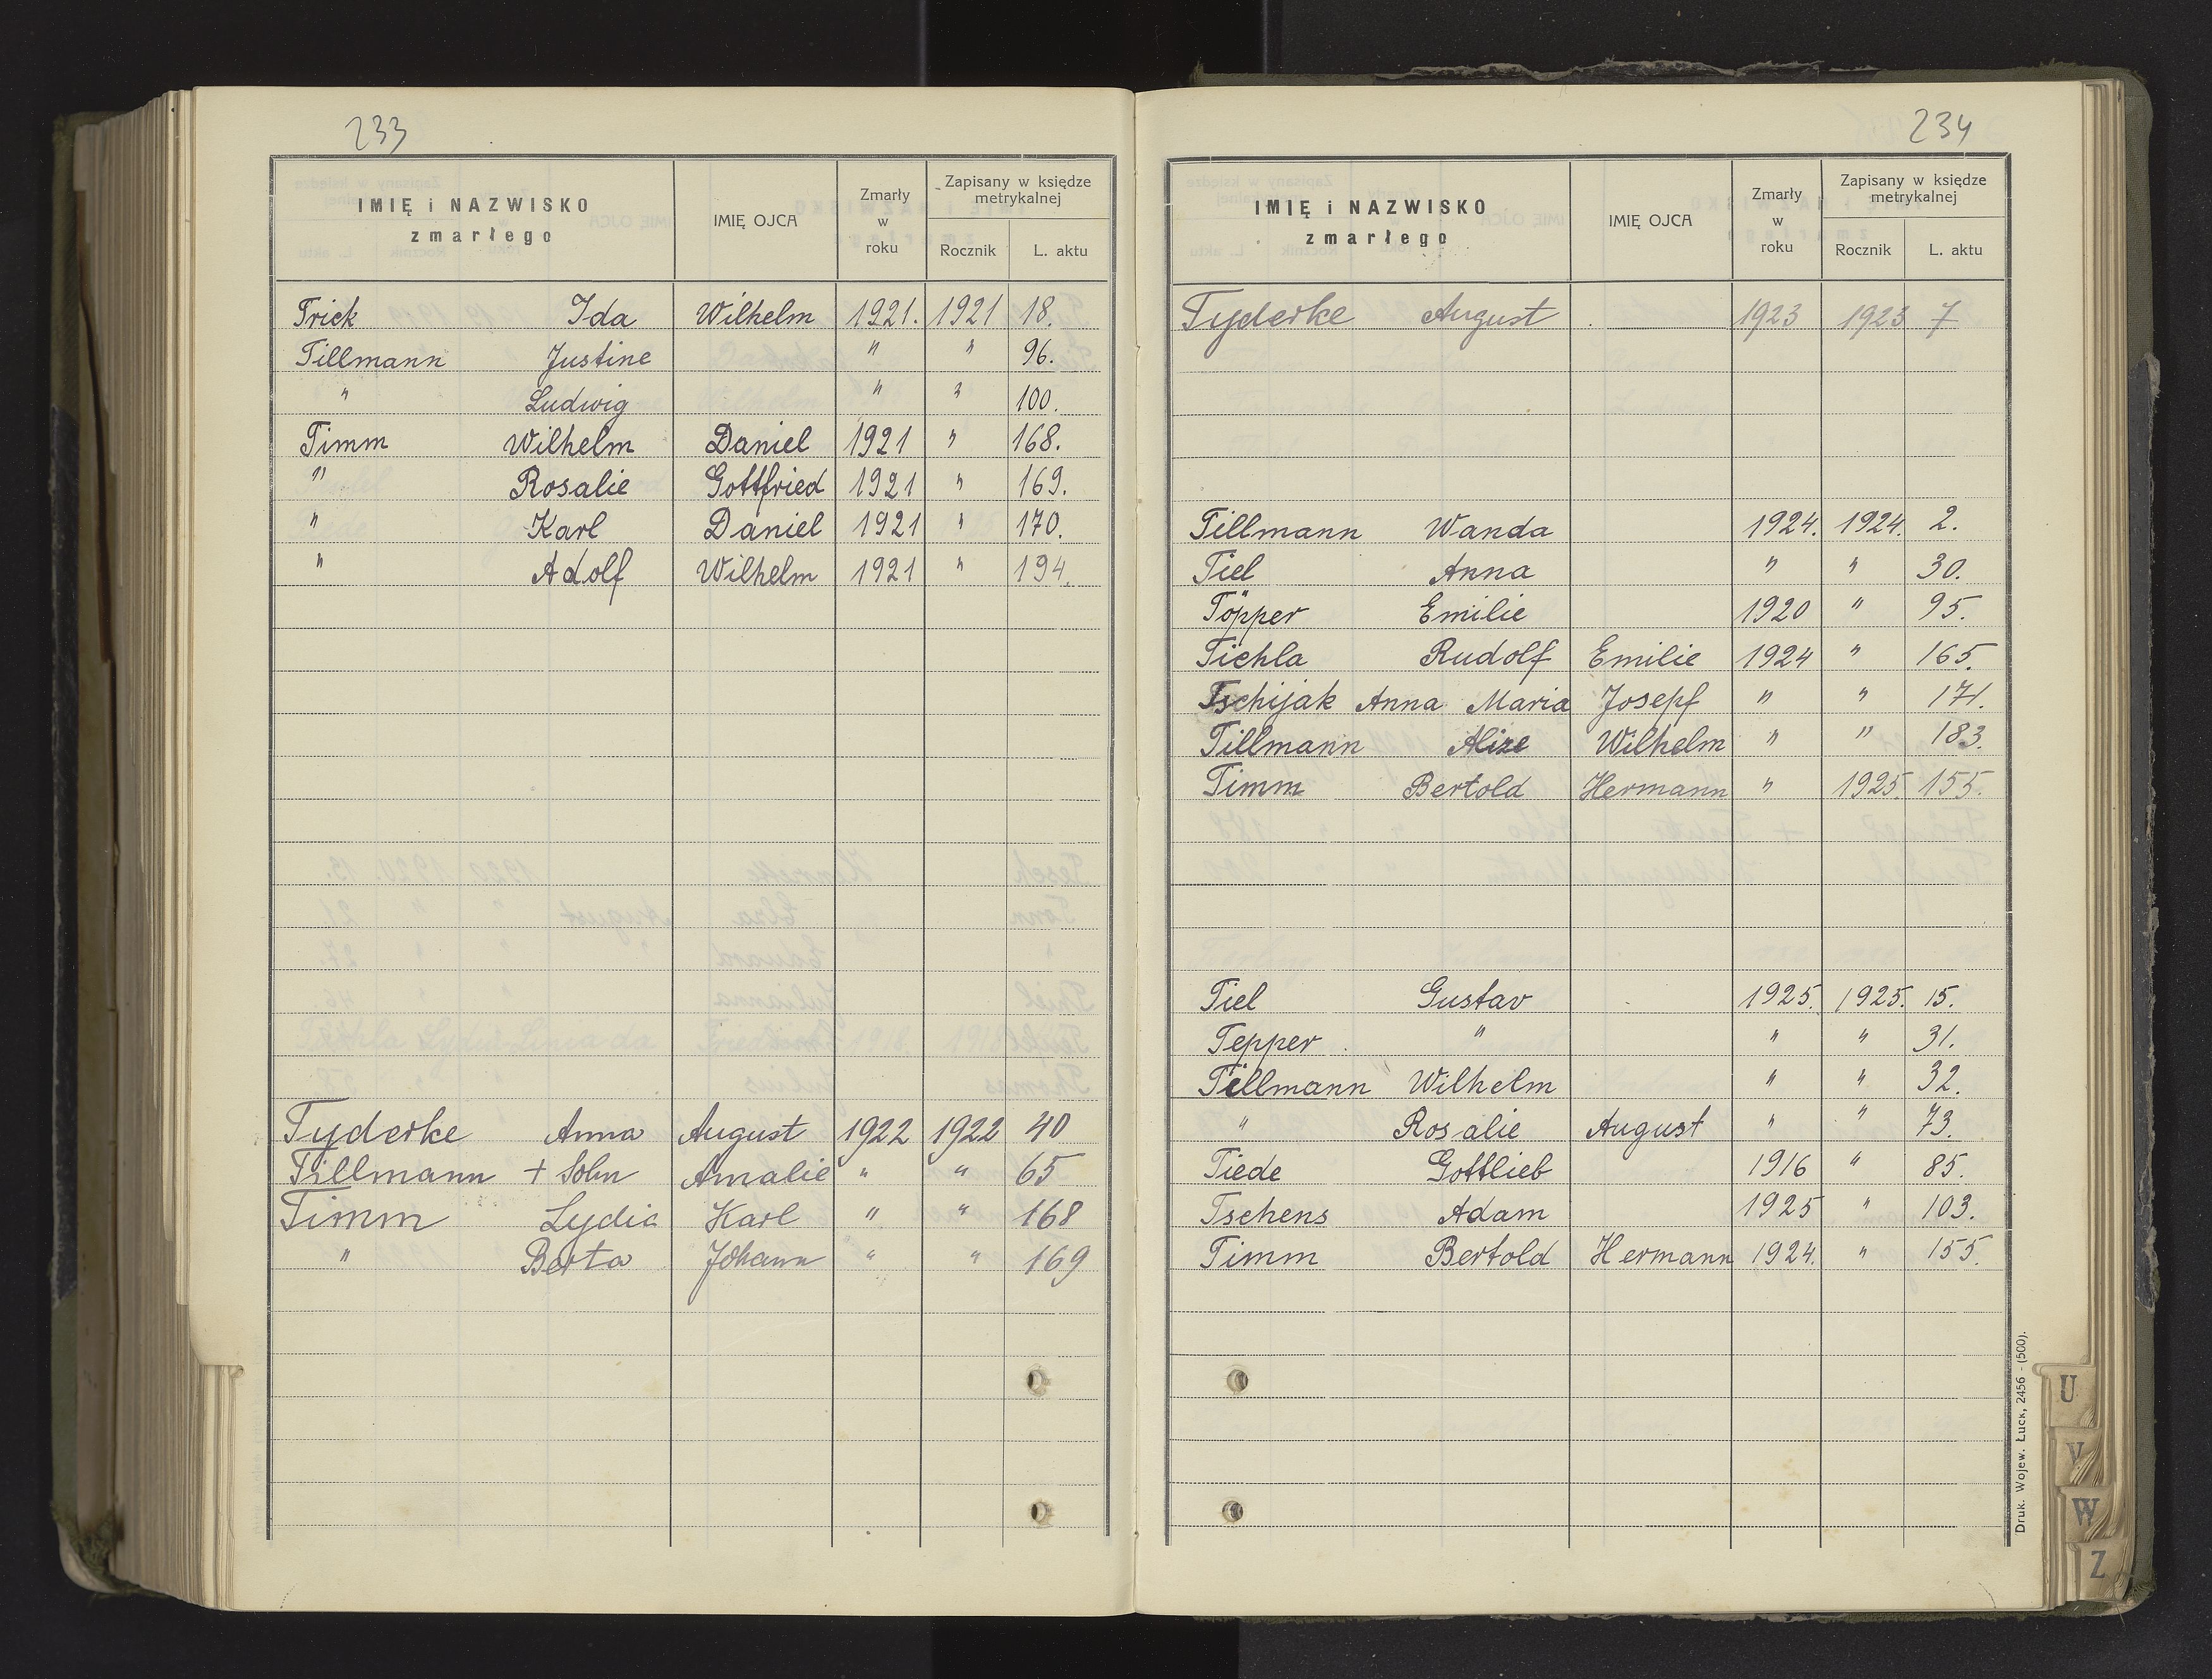 233
IMIĘ i NAZWISKO zmarłego IMIĘ OJCA Zmarły w roku Zapisany w księdze metrykalnej Rocznik L. aktu
Trick Ida Wilhelm 1921. 1921 18.
Tillmann Justine " " 96.
" Ludwig " " 100.
Timm Wilhelm Daniel 1921 " 168.
" Rosalie Gottfried 1921 " 169.
" Karl Daniel 1921 " 170.
" Adolf Wilhelm 1921 " 194.
Tyderke Anna August 1922 1922 40
Tillmann + Sohn Amalie " " 65
Timm Lydia Karl " " 168
" Berta Johann " " 169
234
IMIĘ i NAZWISKO zmarłego IMIĘ OJCA Zmarły w roku Zapisany w księdze metrykalnej Rocznik L. aktu
Tyderke August 1923 1923 7
Tillmann Wanda 1924. 1924. 2.
Tiel Anna " " 30.
Töpper Emilie 1920 " 95.
Tichla Rudolf Emilie 1924 " 165.
Tschijak Anna Maria Josepf " " 171.
Tillmann Alize Wilhelm " " 183.
Timm Bertold Hermann " 1925. 155.
Tiel Gustav 1925. 1925. 15.
Tepper " " " 31.
Tillmann Wilhelm " " 32.
" Rosalie August " " 73.
Tiede Gottlieb 1916 " 85.
Tschens Adam 1925 " 103.
Timm Bertold Hermann 1924. " 155.
Druk. Wojew. Łuck, 2456 - (500).
U
V
W
Z